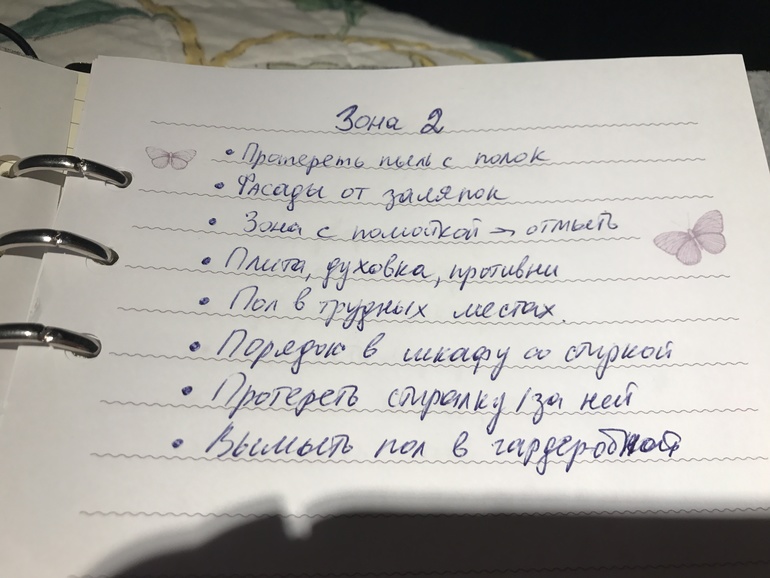 Зона 2
• Протереть пыль с полок
• Фасады от заляпок
• Зона с помойкой → отмыть
• Плита, духовка, противни
• Пол в трудных местах.
• Порядок в шкафу со стиркой
• Протереть стиралку / за ней
• Вымыть пол в гардеробной